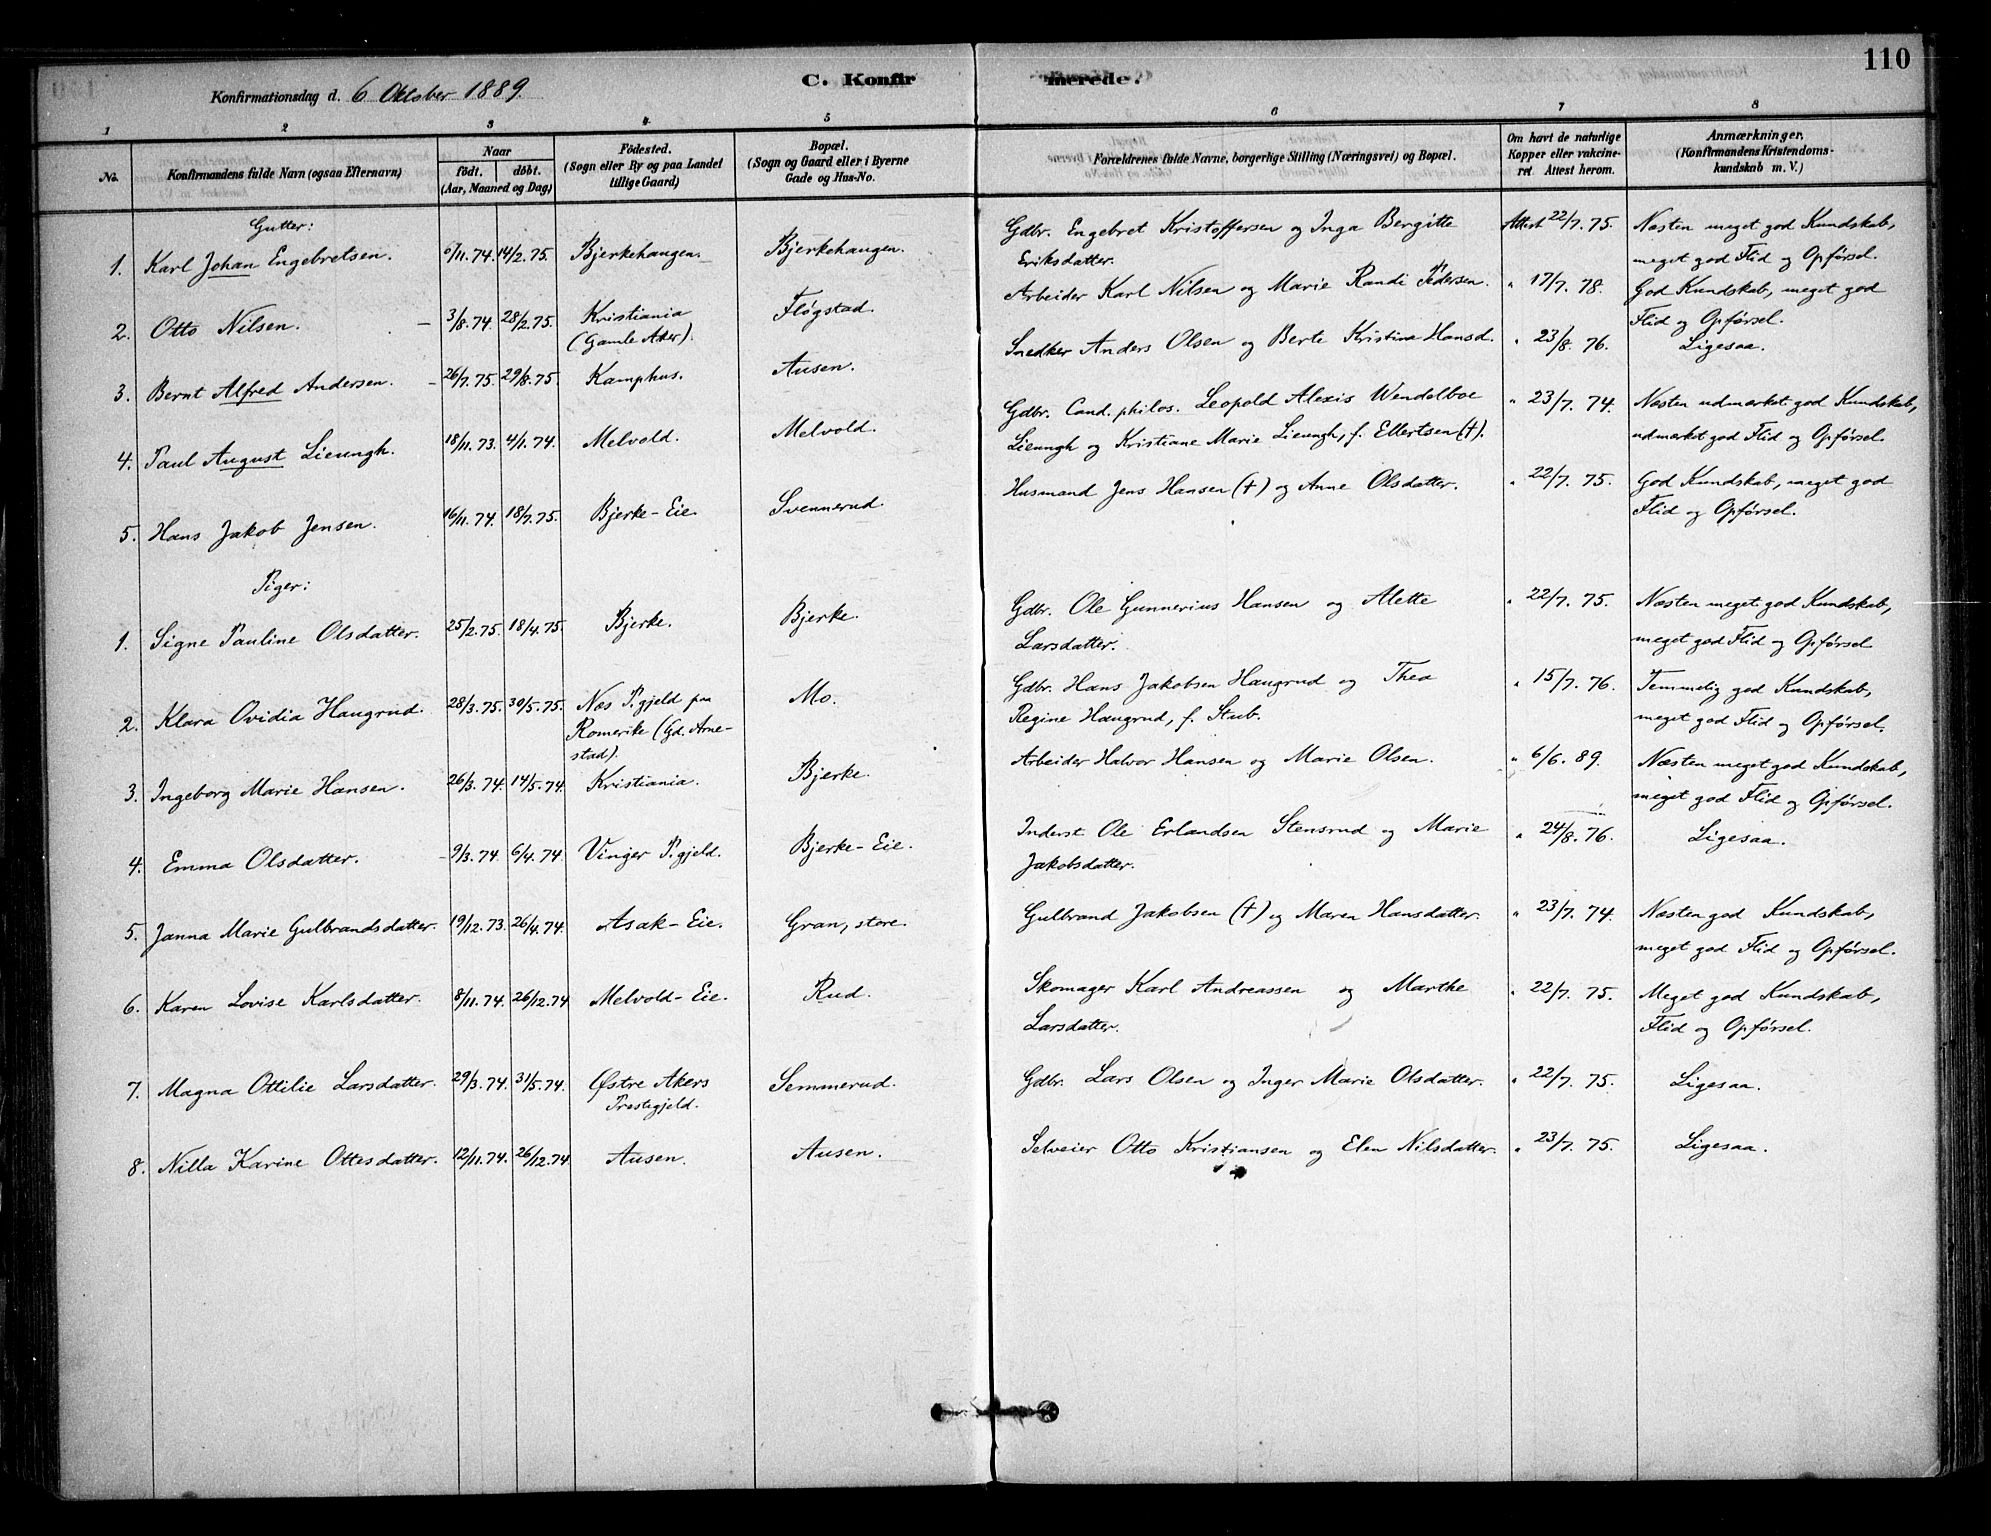 110
C. Konfirmerede.
Konfirmationsdag d. 6 Oktober 1889.
1 2 3 4 5 6 7 8
No.
Konfirmandens fulde Navn (ogsaa Efternavn)
Naar
födt. döbt.
(Aar, Maaned og Dag)
Födested.
(Sogn eller By og paa Landet
tillige Gaard)
Bopæl.
(Sogn og Gaard eller i Byerne
Gade og Hus-No.
Forældrenes fulde Navne, borgerlige Stilling (Næringsvei) og Bopæl.
Om havt de naturlige
Kopper eller vakcine-
ret. Attest herom.
Anmærkninger.
(Konfirmandens Kristendoms-
kundskab m. V.)
Gutter:
1. Karl Johan Engebretsen. 6/11.74. 14/2.75. Bjerkehaugen. Bjerkehaugen. Gdbr. Engebret Kristoffersen og Inga Bergitte Attest 22/7.75. Næsten meget god Kundskab,
Eriksdatter. meget god Flid og Opførsel.
2. Otto Nilsen. – 3/8.74. 28/2.75. Kristiania Fløgstad. Arbeider Karl Nilsen og Marie Randi Pedersen. " 17/7.78. God Kundskab, meget god
(Gamle Aker). Flid og Opførsel.
3. Bernt Alfred Andersen. – 26/7.75. 29/8.75. Kamphus. Ausen. Snedker Anders Olsen og Berte Kristina Hansd. " 23/8.76. Ligesaa.
4. Paul August Lieungh. 18/11.73. 4/1.74. Melvold. Melvold. Gdbr. Cand. philos. Leopold Alexis Wendelboe " 23/7.74. Næsten udmærket god Kundskab,
Lieungh og Kristiane Marie Lieungh, f. Ellertsen (†). udmærket god Flid og Opførsel.
5. Hans Jakob Jensen. 16/11.74. 18/7.75. Bjerke-Eie. Svennerud. Husmand Jens Hansen (†) og Anne Olsdatter. " 22/7.75. God Kundskab, meget god
Flid og Opførsel.
Piger:
1. Signe Pauline Olsdatter. 25/2.75. 18/4.75. Bjerke. Bjerke. Gdbr. Ole Gunnerius Hansen og Alette " 22/7.75. Næsten meget god Kundskab,
Larsdatter. meget god Flid og Opførsel
2. Klara Ovidia Haugrud. 28/3.75. 30/5.75. Næs P.gjeld paa Mo. Gdbr. Hans Jakobsen Haugrud og Thea " 15/7.76. Temmelig god Kundskab,
Romerike (Gd. Arne- Regine Haugrud, f. Stub. meget god Flid og Opførsel.
stad).
3. Ingeborg Marie Hansen. 26/3.74. 14/5.74. Kristiania. Bjerke. Arbeider Halvor Hansen og Marie Olsen. " 6/6.89. Næsten meget god Kundskab,
meget god Flid og Opførsel.
4. Emma Olsdatter. – 9/3.74. 6/4.74. Vinger P.gjeld. Bjerke-Eie. Inderst Ole Erlandsen Stensrud og Marie " 24/8.76. Ligesaa.
Jakobsdatter.
5. Janna Marie Gulbrandsdatter. 19/12.73. 26/4.74. Asak-Eie. Gran, store. Gulbrand Jakobsen (†) og Maren Hansdatter. " 23/7.74. Næsten god Kundskab,
meget god Flid og Opførsel.
6. Karen Lovise Karlsdatter. 8/11.74. 26/12.74 Melvold-Eie. Rud. Skomager Karl Andreassen og Marthe " 22/7.75. Meget god Kundskab,
Larsdatter. Flid og Opførsel.
7. Magna Ottilie Larsdatter. 29/3.74. 31/5.74. Østre Akers Semmerud. Gdbr. Lars Olsen og Inger Marie Olsdatter. " 22/7.75. Ligesaa.
Prestegjeld.
8. Nilla Karine Ottesdatter. 12/11.74. 26/12.74 Ausen. Ausen. Selveier Otto Kristiansen og Elen Nilsdatter. " 23/7.75. Ligesaa.